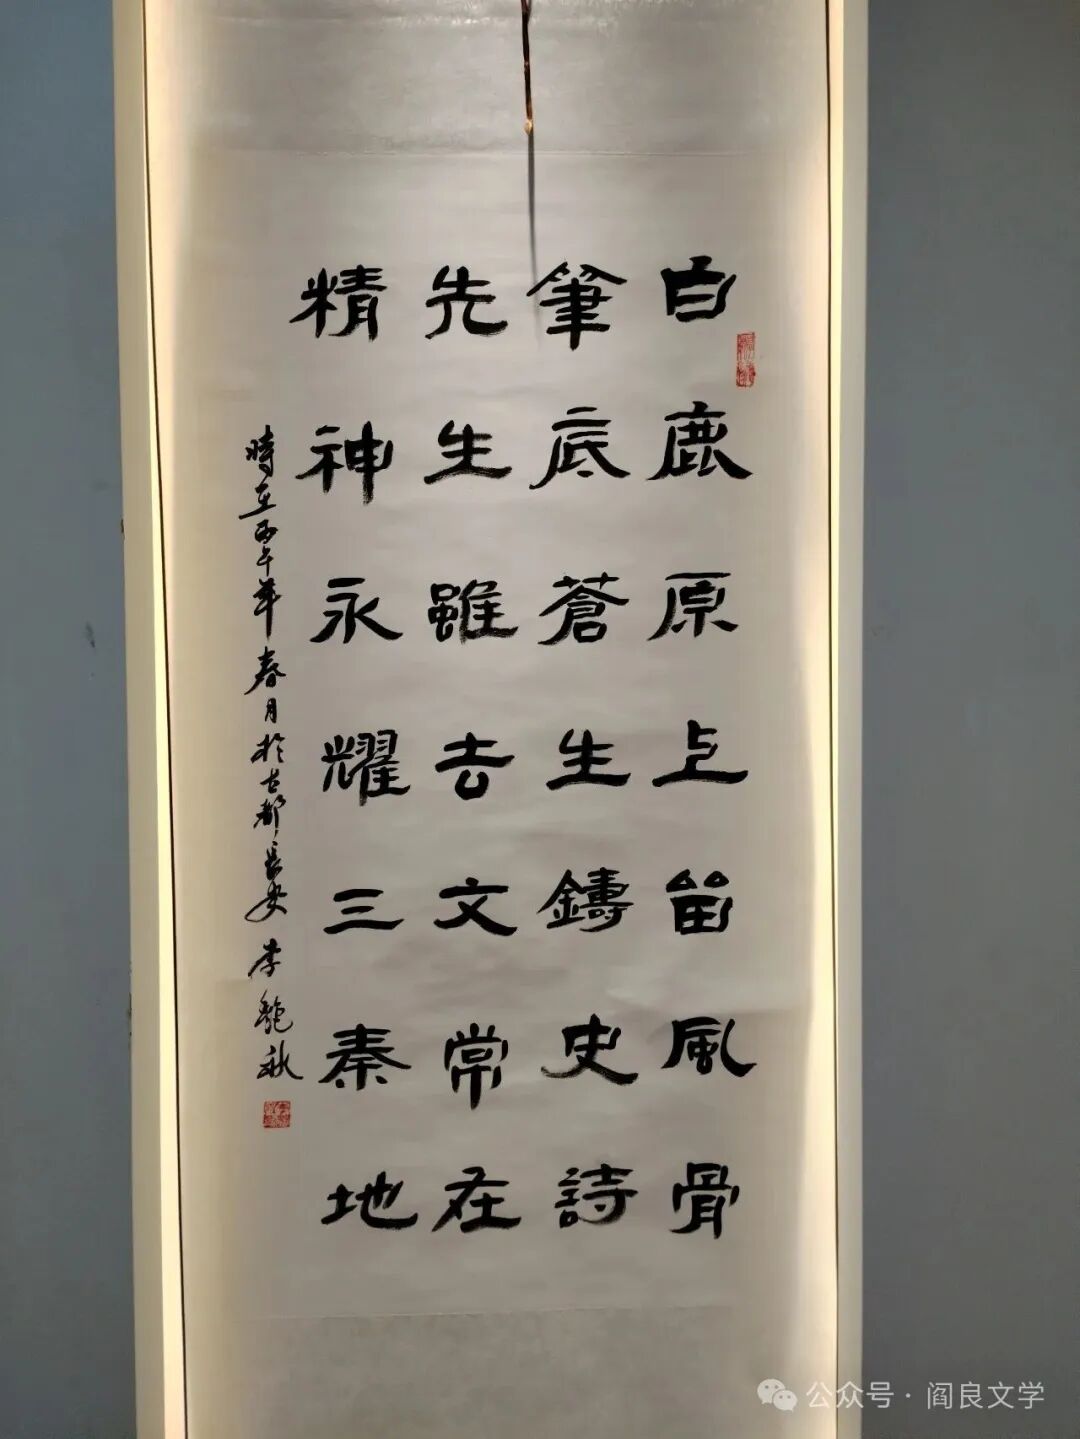 白鹿原上留風骨
筆底蒼生鑄史詩
先生雖去文常在
精神永耀三秦地
時在丙午年春月於古都長安李艳秋
公众号·阎良文学